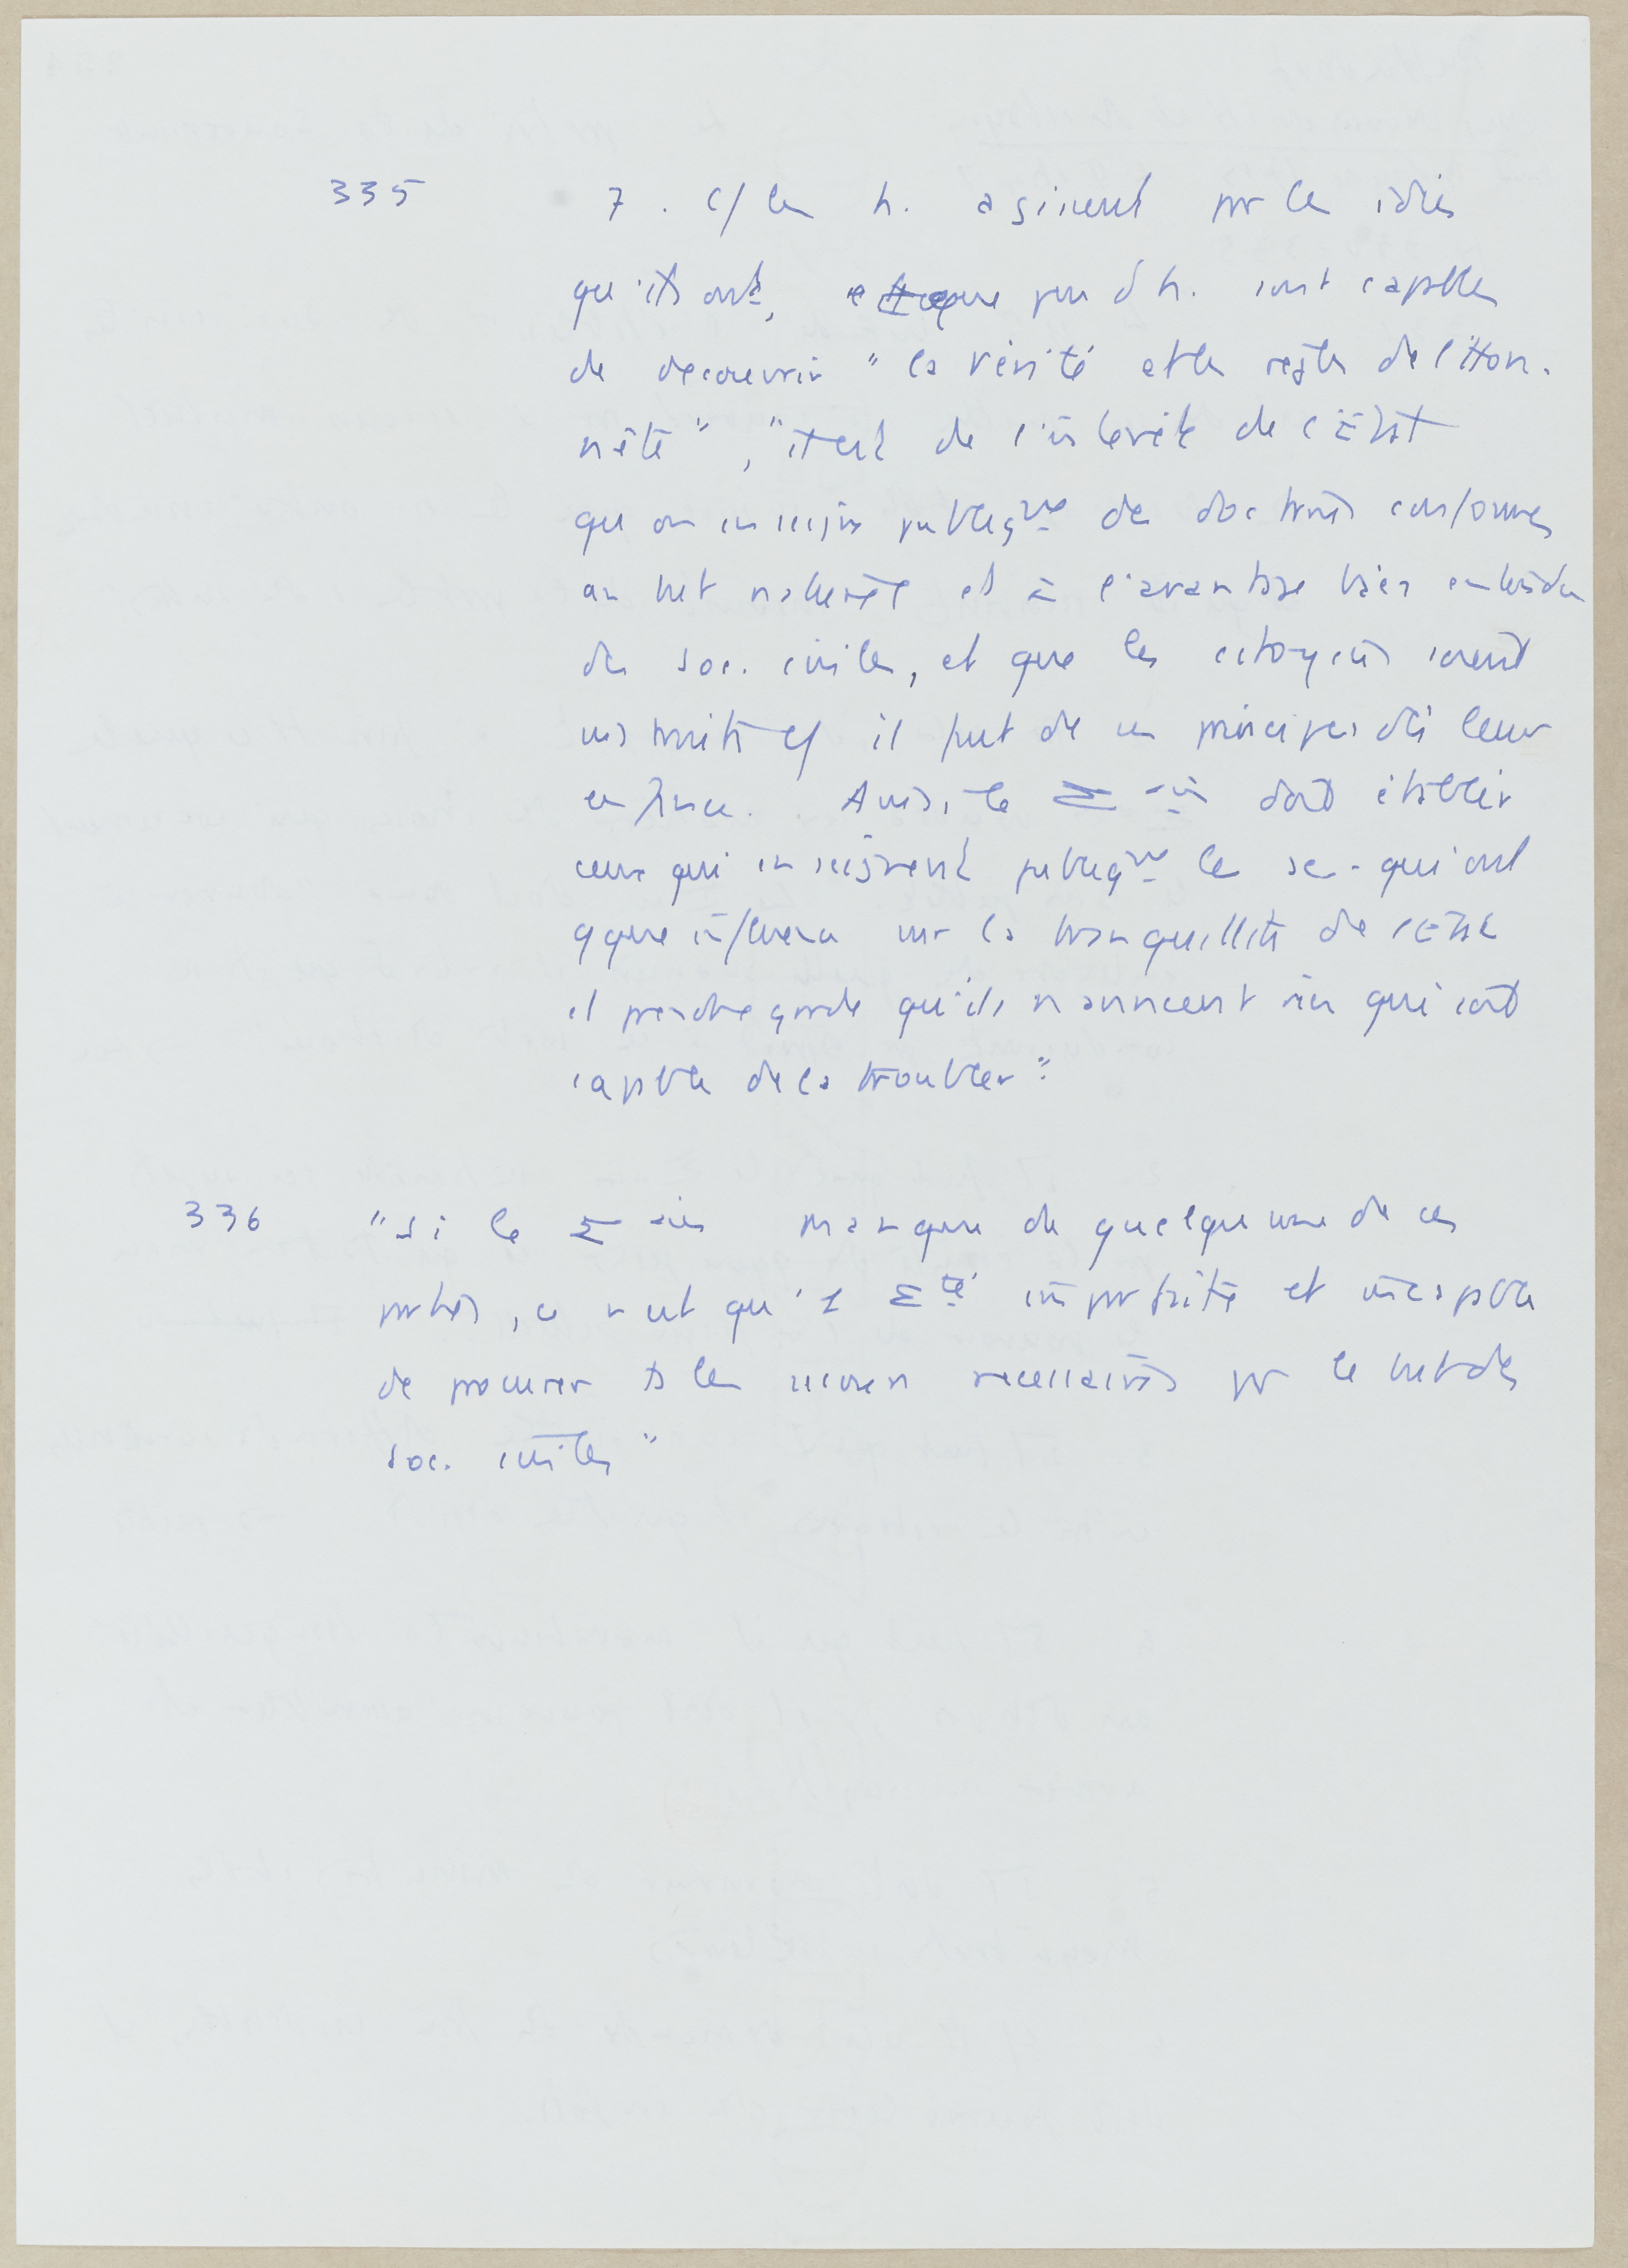 335 7. c/ les h. agissent pr les idées
qu'ils ont, et que peu d h. sont capbles
de decouvrir "la vérité et les regles de l'Hon-
nêté", "il est de l'intérêt de l'État
qu on enseigne publiqut des doctrines conformes
au but naturel et à l'avantage bien entendu
des soc. civiles, et que les citoyens soient
instruits c/ il faut de ces principes dès leur
enfance. Ainsi le Σ ain doit établir
ceux qui enseignent publiqut les sc. qui ont
qque influence sur la tranquillité de l'État
il prendre garde qu'ils n annoncent rien qui soit
capble de la troubler".
336 "si le Σ ain manque de quelqu une de ces
parties, ce n est qu'1 Σté imparfaite et incapble
de procurer ts les moyens necessaires pr le but des
soc. civiles"